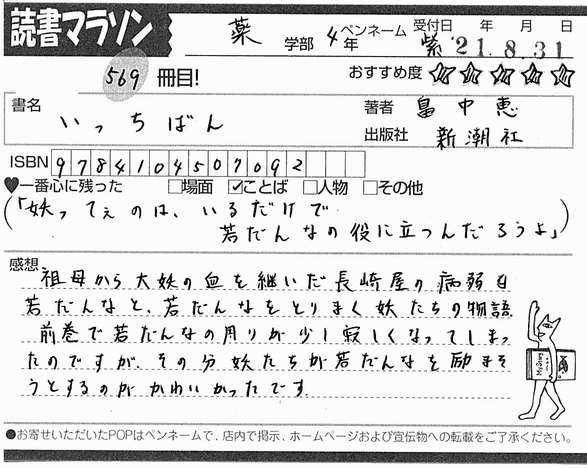 読書マラソン
薬 学部 4年 ペンネーム 紫 受付日 年 月 日 '21.8.31
569 冊目! おすすめ度 ☆☆☆☆☆
書名 いっちばん
著者 畠中恵
出版社 新潮社
ISBN 9784104507092
♥一番心に残った □場面 ☑ことば □人物 □その他
(「妖ってぇのは、いるだけで
若だんなの役に立つんだろうよ」)
感想
祖母から大妖の血を継いだ長崎屋の病弱な
若だんなと、若だんなをとりまく妖たちの物語
前巻で若だんなの周りが少し寂しくなってしまっ
たのですが、その分妖たちが若だんなを励まそ
うとするのがかわいかったです
●お寄せいただいたPOPはペンネームで、店内で掲示、ホームページおよび宣伝物への転載をご了承ください。